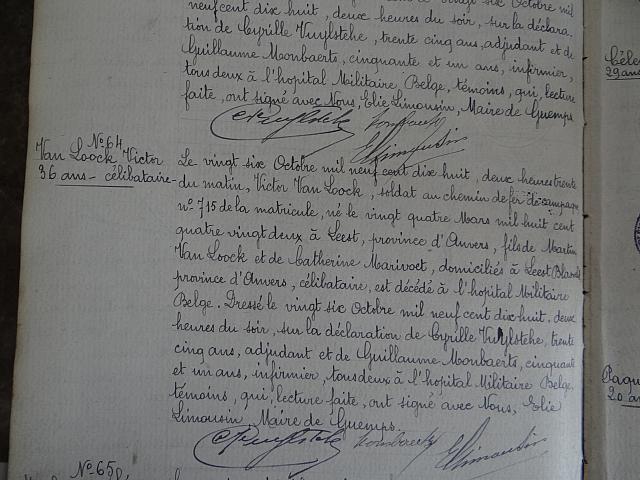 neufcent dix huit, deux heures du soir, sur la déclara-
tion de Cyrille Vuylsteke, trente cinq ans, adjudant et de
Guillaume Monbaerts, cinquante et un ans, infirmier,
tous deux à l'hopital Militaire Belge, témoins, qui, lecture
faite, ont signé avec Nous, Elie Limousin, Maire de Guemps.
N° 64
Van Loock Victor
36 ans - célibataire -
Le vingt six Octobre mil neuf cent dix huit, deux heures trente
du matin, Victor Van Loock, soldat au chemin de fer de campagne
n° 715 de la matricule, né le vingt quatre Mars mil huit cent
quatre vingt deux à Leest, province d'Anvers, fils de Martin
Van Loock et de Catherine Marivoet, domiciliés à Leest
province d'Anvers, célibataire, est décédé à l'hopital Militaire
Belge. Dressé le vingt six Octobre mil neuf cent dix huit, deux
heures du soir, sur la déclaration de Cyrille Vuylsteke, trente
cinq ans, adjudant et de Guillaume Monbaerts, cinquante
et un ans, infirmier, tous deux à l'hopital Militaire Belge.
témoins, qui, lecture faite, ont signé avec Nous, Elie
Limousin Maire de Guemps.
N° 65
29 ans
20 an